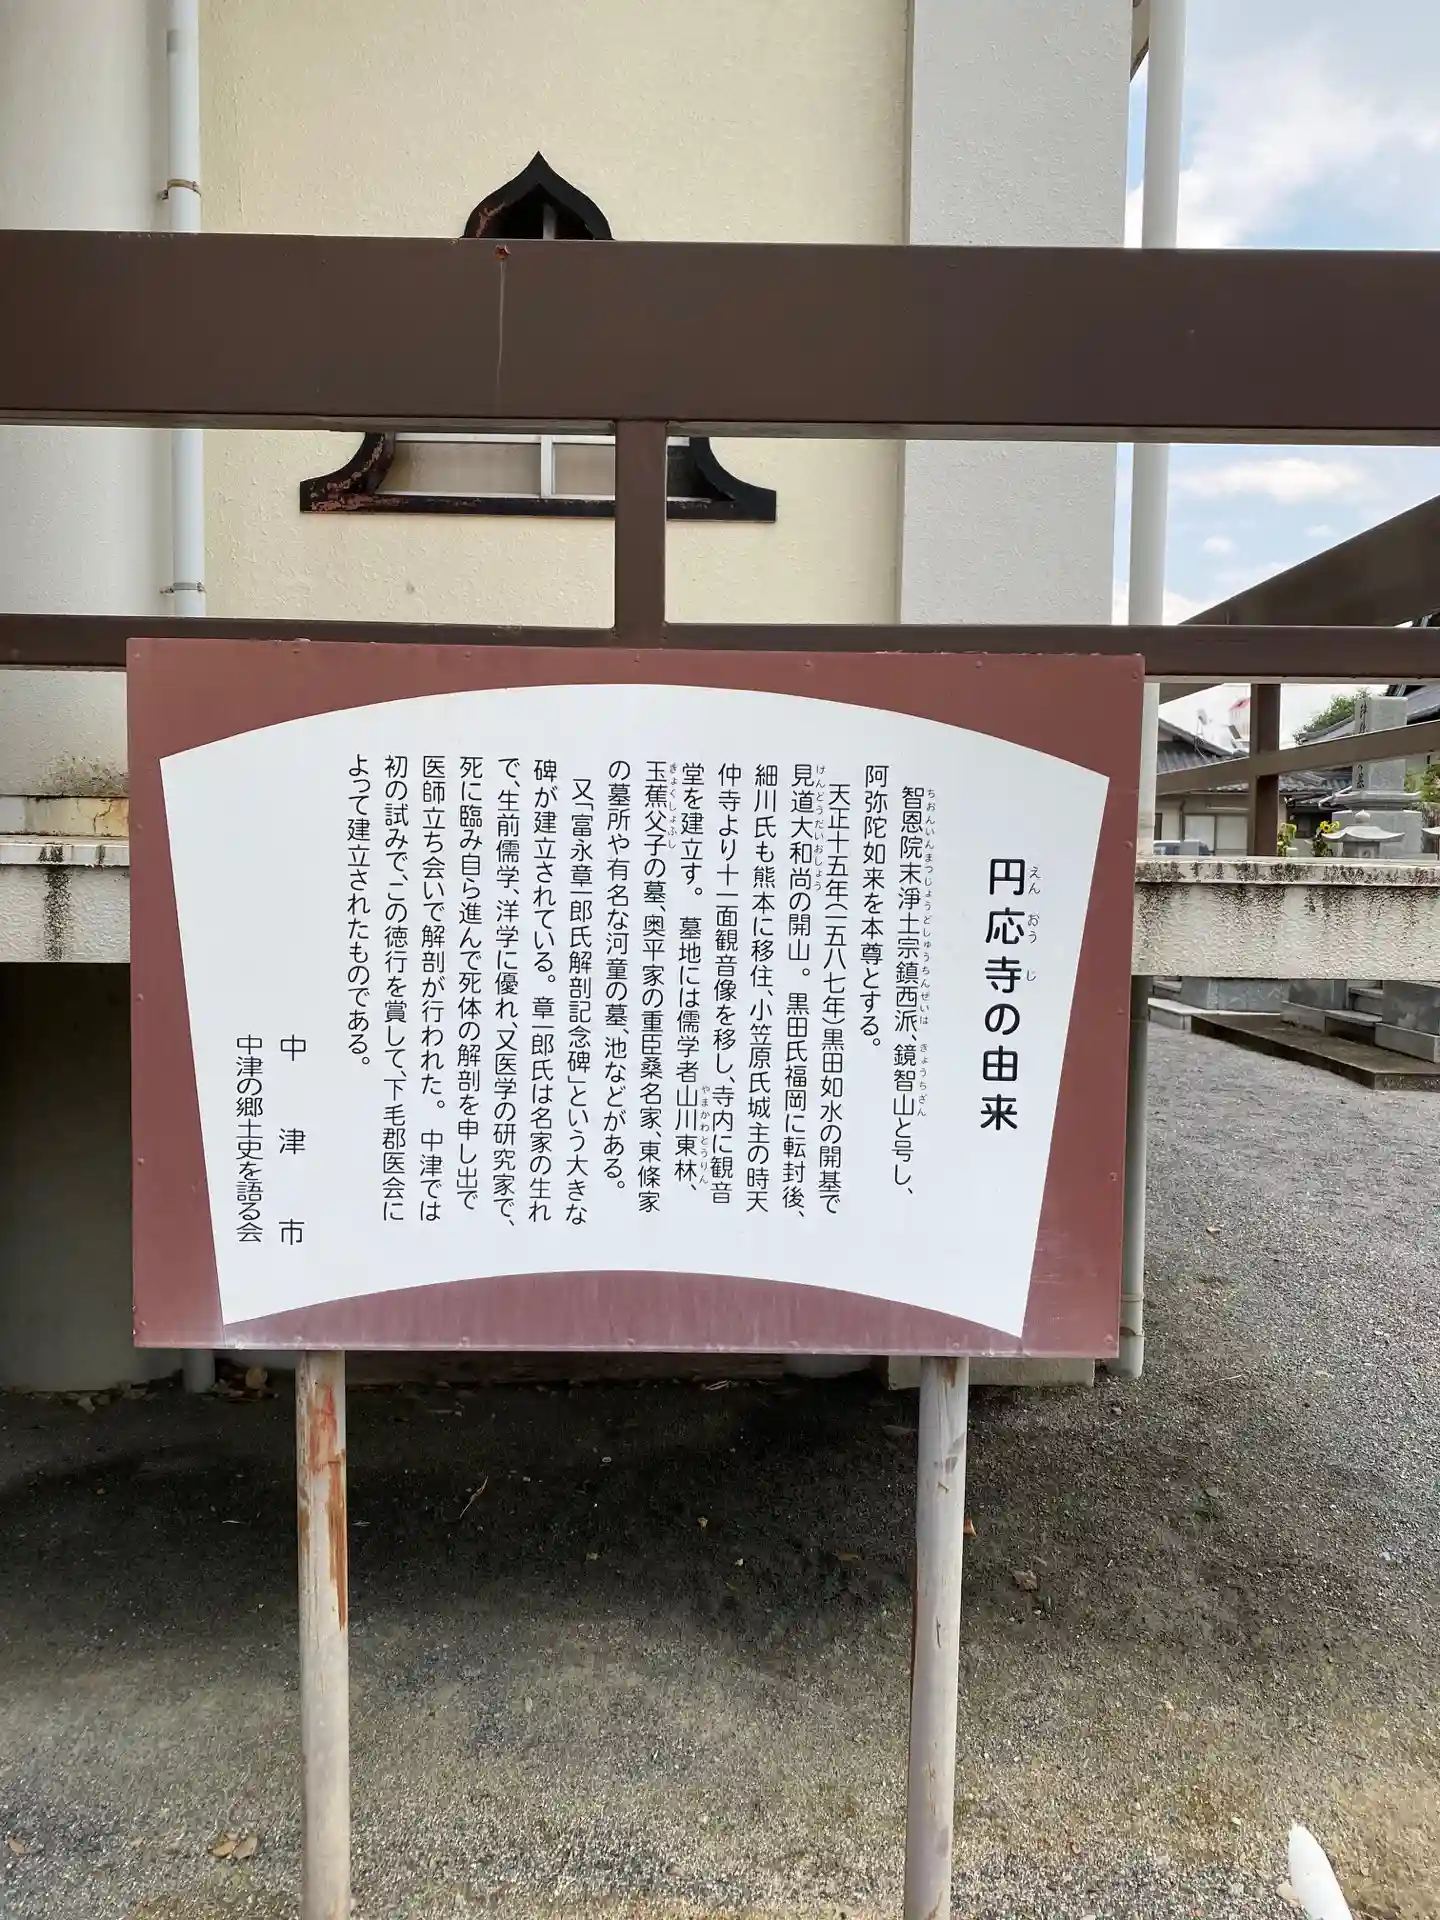 円応寺の由来
えん おう じ
智恩院末淨土宗鎮西派、鏡智山と号し、
ちおんいんまつじょうどしゅうちんぜいは きょうちざん
阿弥陀如来を本尊とする。
天正十五年(一五八七年)黒田如水の開基で
見道大和尚の開山。黒田氏福岡に転封後、
けんどうだいおしょう
細川氏も熊本に移住、小笠原氏城主の時天
仲寺より十一面観音像を移し、寺内に観音
堂を建立す。墓地には儒学者山川東林、
やまかわとうりん
玉蕉父子の墓、奥平家の重臣桑名家、東條家
ぎょくしょふし
の墓所や有名な河童の墓、池などがある。
又「富永章一郎氏解剖記念碑」という大きな
碑が建立されている。章一郎氏は名家の生れ
で、生前儒学、洋学に優れ、又医学の研究家で、
死に臨み自ら進んで死体の解剖を申し出で
医師立ち会いで解剖が行われた。中津では
初の試みで、この徳行を賞して、下毛郡医会に
よって建立されたものである。
中津市
中津の郷土史を語る会